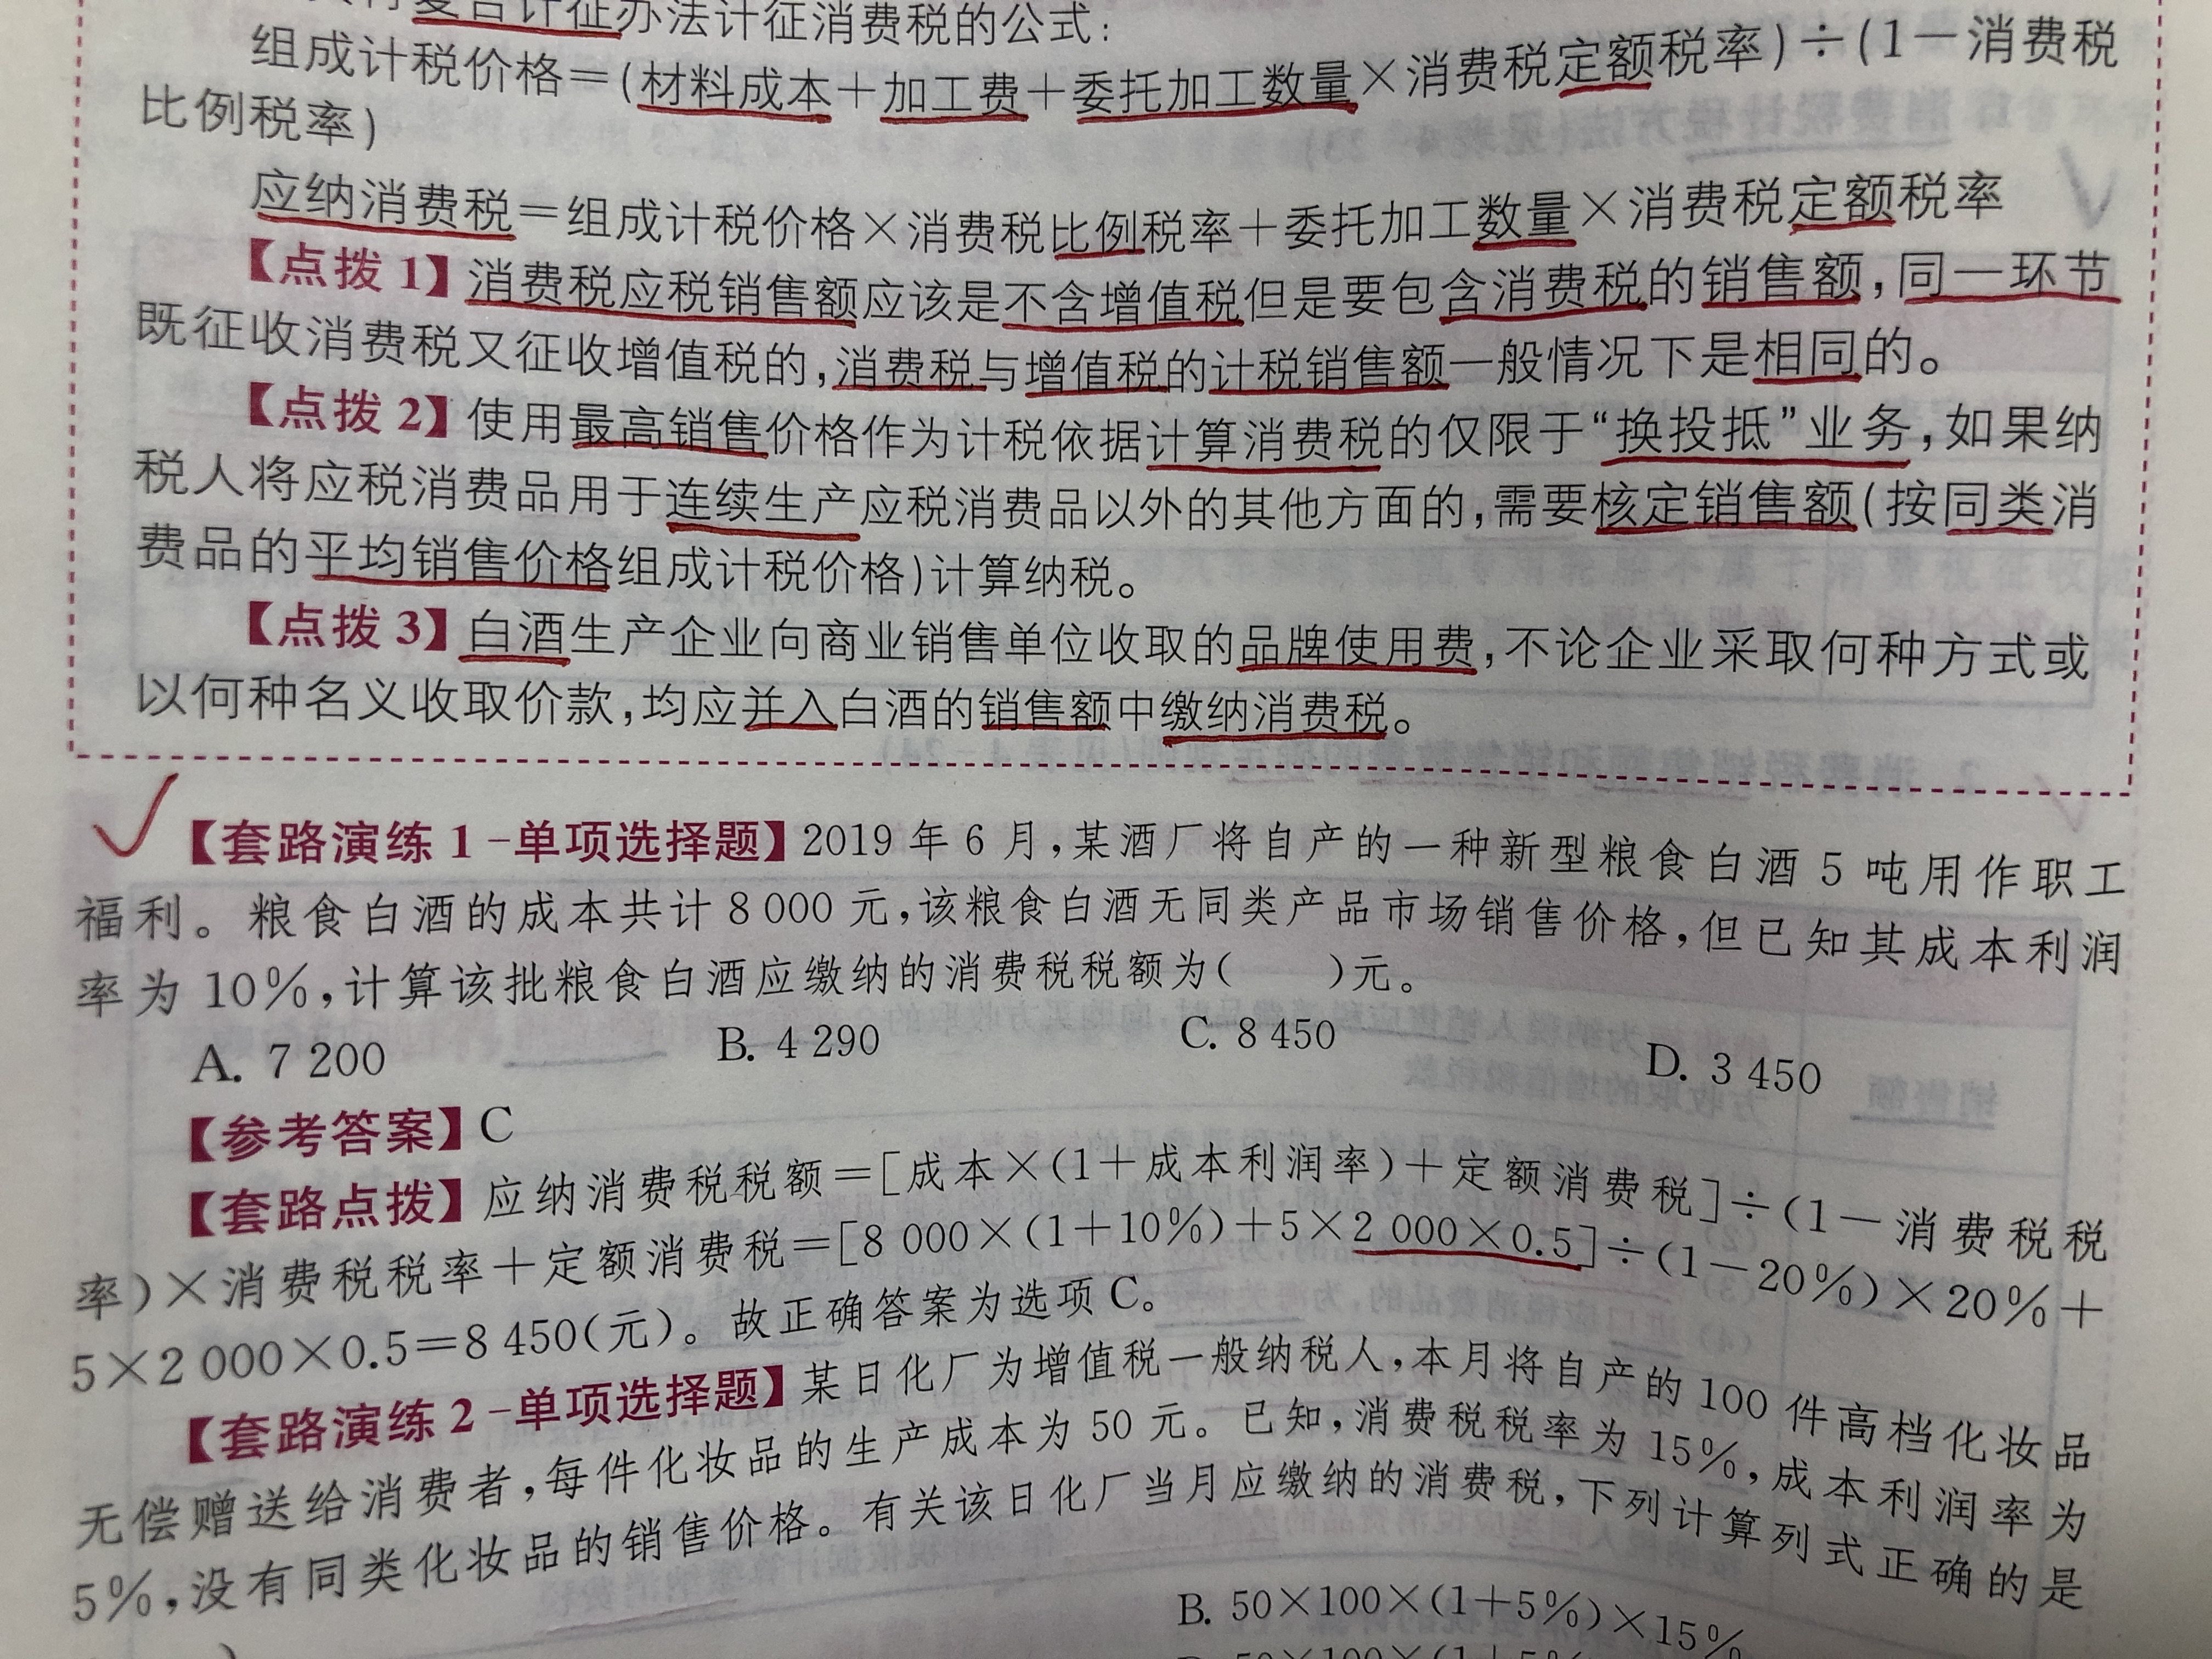 复合计征办法计征消费税的公式：
组成计税价格＝(材料成本＋加工费＋委托加工数量×消费税定额税率)÷(1－消费税
比例税率)
应纳消费税＝组成计税价格×消费税比例税率＋委托加工数量×消费税定额税率
【点拨1】消费税应税销售额应该是不含增值税但是要包含消费税的销售额，同一环节
既征收消费税又征收增值税的，消费税与增值税的计税销售额一般情况下是相同的。
【点拨2】使用最高销售价格作为计税依据计算消费税的仅限于“换投抵”业务，如果纳
税人将应税消费品用于连续生产应税消费品以外的其他方面的，需要核定销售额(按同类消
费品的平均销售价格组成计税价格)计算纳税。
【点拨3】白酒生产企业向商业销售单位收取的品牌使用费，不论企业采取何种方式或
以何种名义收取价款，均应并入白酒的销售额中缴纳消费税。
【套路演练1-单项选择题】2019年6月，某酒厂将自产的一种新型粮食白酒5吨用作职工
福利。粮食白酒的成本共计8 000元，该粮食白酒无同类产品市场销售价格，但已知其成本利润
率为10%，计算该批粮食白酒应缴纳的消费税税额为(　　)元。
A. 7 200 B. 4 290 C. 8 450 D. 3 450
【参考答案】C
【套路点拨】应纳消费税税额＝[成本×(1＋成本利润率)＋定额消费税]÷(1－消费税税
率)×消费税税率＋定额消费税＝[8 000×(1＋10%)＋5×2 000×0.5]÷(1－20%)×20%＋
5×2 000×0.5＝8 450(元)。故正确答案为选项C。
【套路演练2-单项选择题】某日化厂为增值税一般纳税人，本月将自产的100件高档化妆品
无偿赠送给消费者，每件化妆品的生产成本为50元。已知，消费税税率为15%，成本利润率为
5%，没有同类化妆品的销售价格。有关该日化厂当月应缴纳的消费税，下列计算列式正确的是
B. 50×100×(1＋5%)×15%